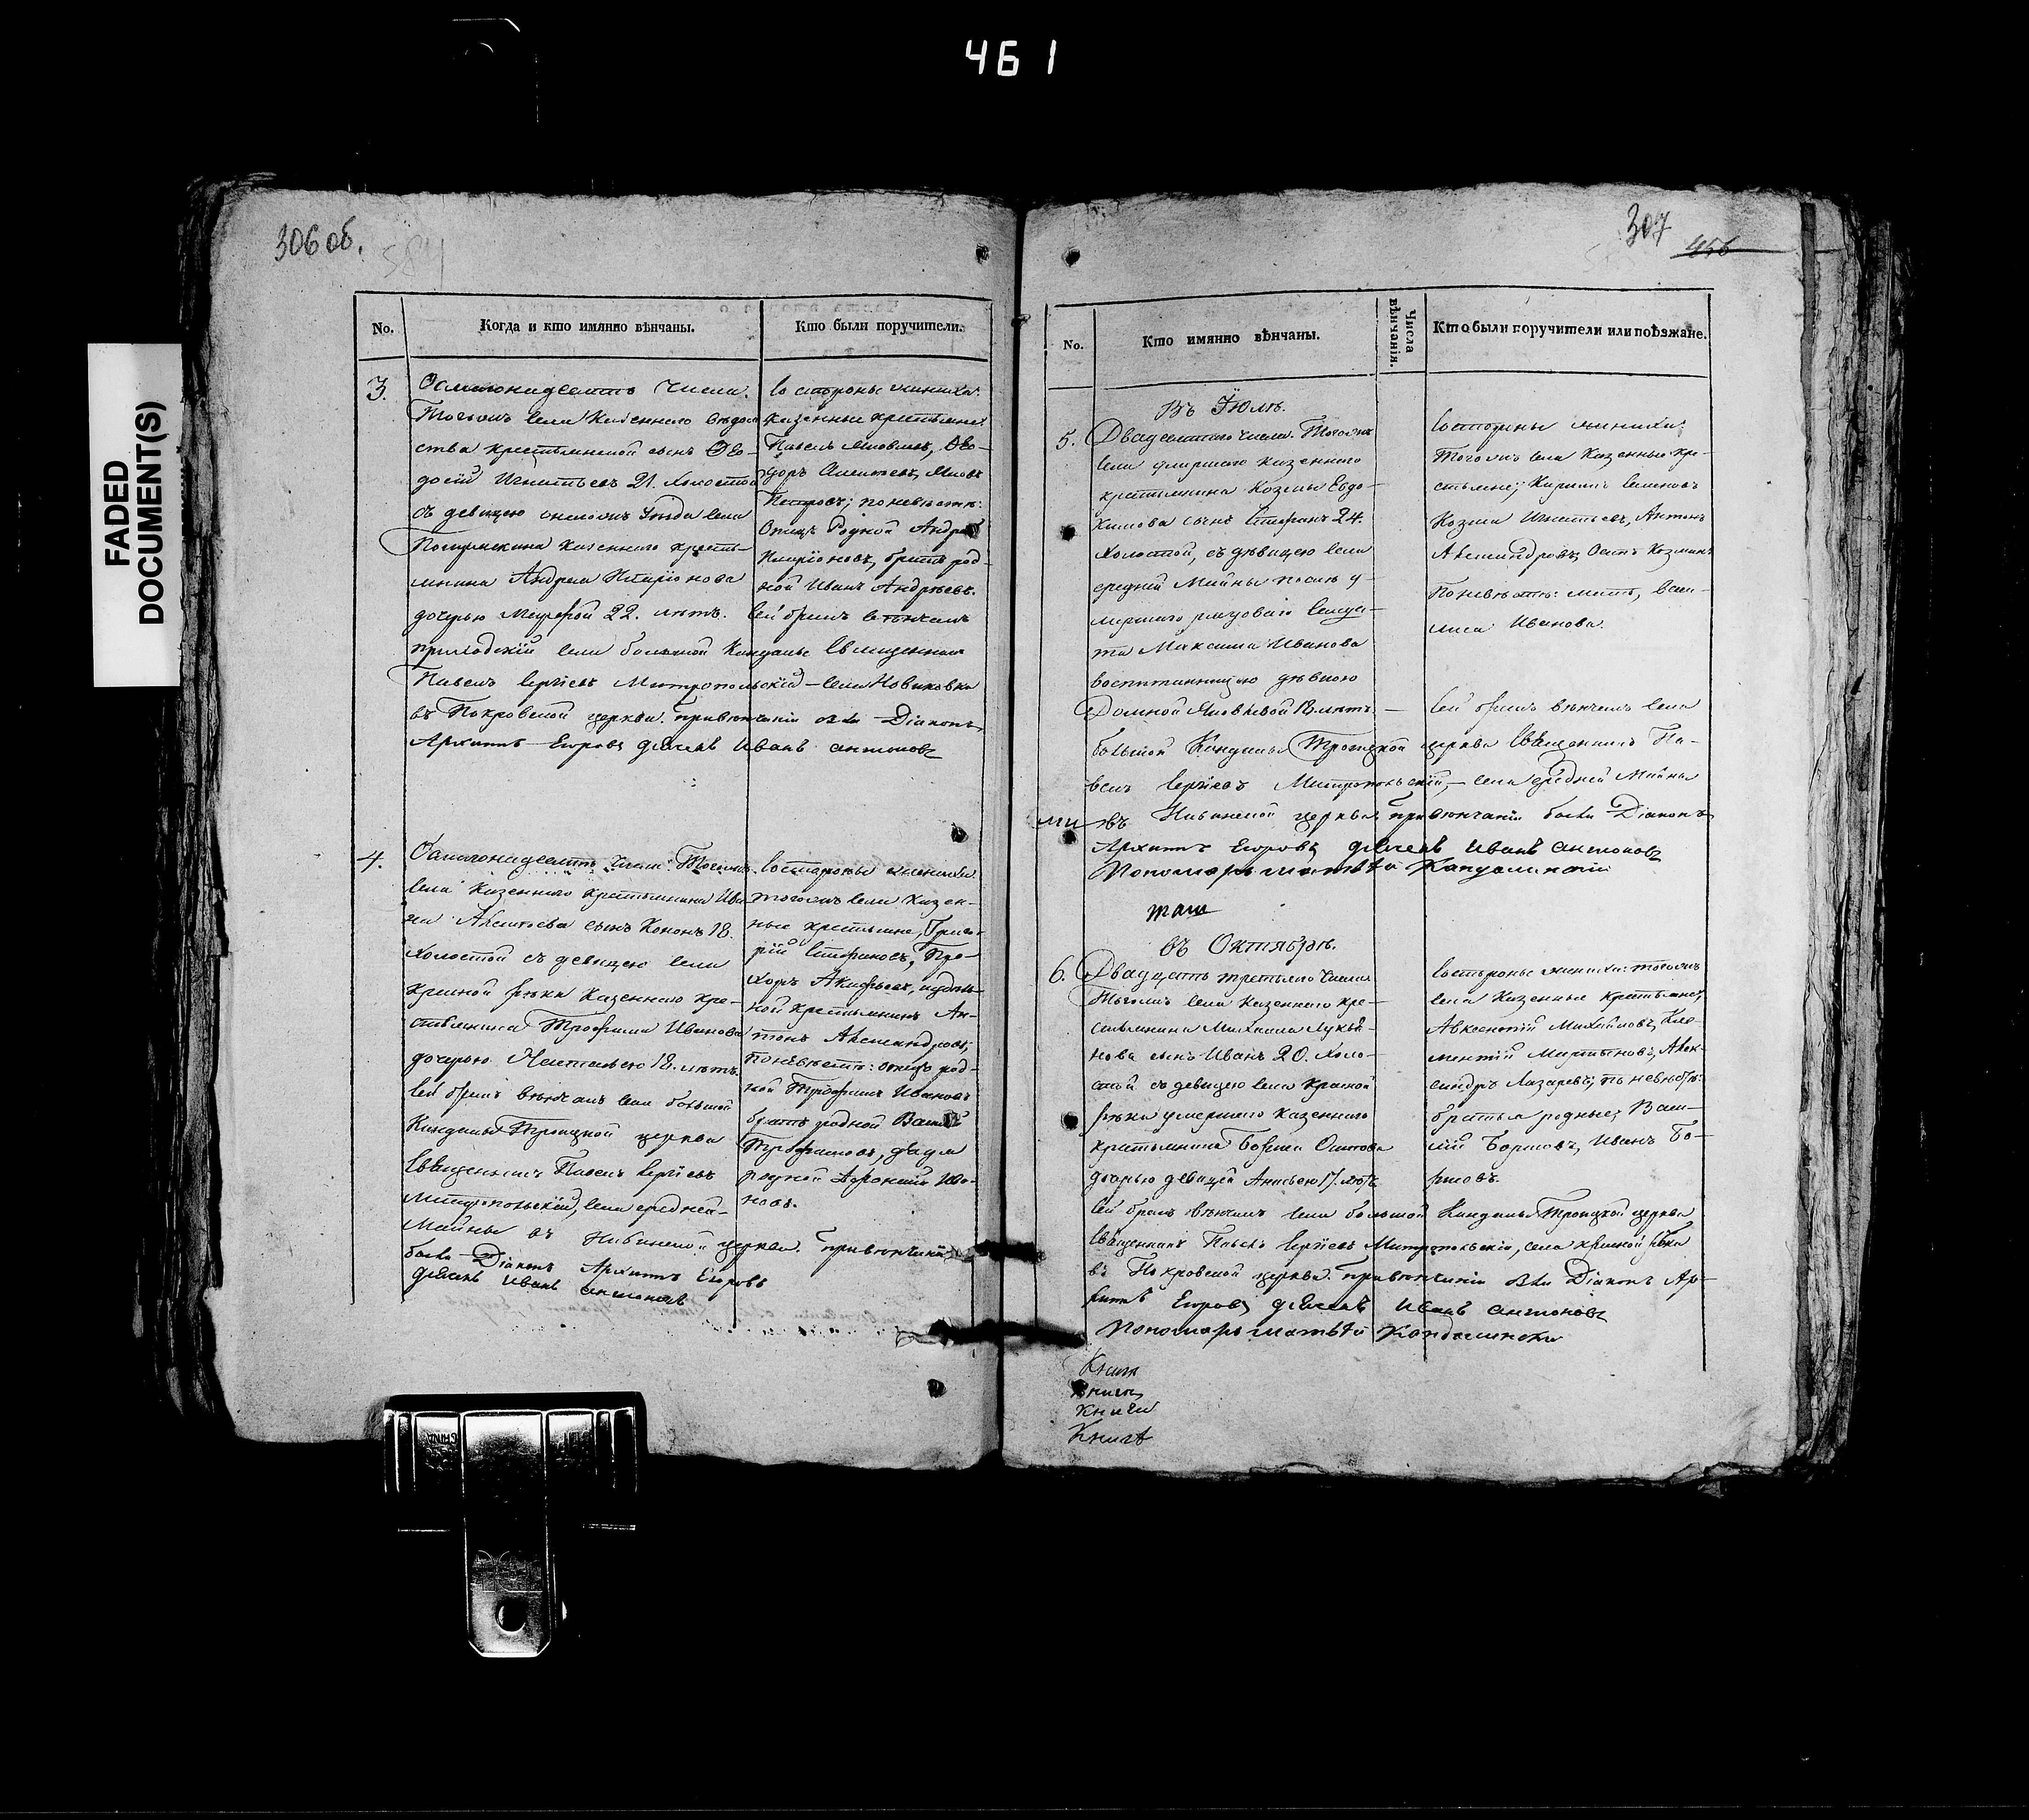 461
FADED
DOCUMENT(S)
306 об.
584
No.
Когда и кто имянно вѣнчаны.
Кто были поручители.
3.
Осмагонадесять числа.
Тогожъ села Казеннаго вѣдом
ства крестьянской сынъ Ѳео-
досій Игнатьевъ 21. холостой
съ девицею онагожъ уѣзда села
казеннаго кресть-
янина Андрея Иларіонова
дочерью 22. лѣтъ.
Сей бракъ вѣнчалъ
приходскій села большой Кандалы Священникъ
Павелъ Сергіевъ Митропольскій – села Новиковка
въ Покровской церкви. привѣнчаніи были Діаконъ
Архипъ Егоровъ дьячекъ Иванъ антоновъ
Со стороны жениха:
казенные крестьяне
Павелъ Яковлевъ, Ѳео-
доръ Яковъ
Петровъ; по невѣстѣ:
Отецъ Родной Андрей
Иларіоновъ, братъ род-
ной Иванъ Андреевъ.
4.
Осмагонадесять числа: Тогожъ
села казеннаго крестьянина Ива
на сынъ Кононъ 18.
холостой съ девицею села
красной рѣки Казеннаго кре-
стьянина Трофима Иванова
дочерью 18. лѣтъ.
Сей бракъ вѣнчалъ села большой
Кандалы Троицкой церкви
Священникъ Павелъ Сергіевъ
Митропольскій, села средней
Майны въ церкви. привѣнчаніи
были Діаконъ Архипъ Егоровъ
дьячекъ Иванъ антоновъ
Со стороны жениха
тогожъ села казен-
ные крестьяне, Григо-
рій Стефановъ, Про-
хоръ удѣль-
ной крестьянинъ Ан-
тонъ Александровъ,
По невѣстѣ: отецъ род-
ной Трофимъ Ивановъ
братъ родной Василій
Трофимовъ, дядя
родной Афонасій Ива-
новъ.
307
456
No.
Кто имянно вѣнчаны.
Числа
вѣнчанія.
Кто были поручители или поѣзжане.
Въ Іюлѣ.
5.
Двадесятаго числа. Тогожъ
села умершаго казеннаго
крестьянина Козмы Евдо-
кимова сынъ Стефанъ 24.
холостой, съ дѣвицею села
средней Майны послѣ у-
мершаго рядоваго Солда-
та Максима Иванова
воспитанницею дѣвкою
Домной Яковлевой 18 лѣтъ. –
Сей бракъ вѣнчалъ села
большой Кандалы Троицкой церкви Священникъ Па-
велъ Сергіевъ Митропольскій, – села средней Майны
въ церкви привѣнчаніи были Діаконъ
Архипъ Егоровъ дьячекъ Иванъ антоновъ
Пономарь матвѣй Кандалинскій
Со стороны жениха:
Тогожъ села Казенные кре-
стьяне; Кирилъ Семеновъ
Козма Игнатьевъ, Антонъ
Александровъ, Осипъ Козминъ
По невѣстѣ: мать, Васи-
лиса Иванова.
въ Октябрѣ.
6.
Двадцать третьяго числа
Тогожъ села Казеннаго кре-
стьянина Михаила Лукья-
нова сынъ Иванъ 20. холо-
стой съ девицею села красной
рѣки умершаго казеннаго
крестьянина Бориса Осипова
дочерью девицей Анисьею 17. лѣтъ
Сей бракъ вѣнчалъ села большой Кандалы Троицкой церкви
Священникъ Павелъ Сергіевъ Митропольскій, села красной рѣки
въ Покровской церкви. привѣнчаніи были Діаконъ Ар-
хипъ Егоровъ дьячекъ Иванъ антоновъ
Пономарь матвѣй Кандалински
Со стороны жениха: тогожъ
села Казенные крестьяне,
Авксентій Михайловъ, Кле-
ментій Мартыновъ, Алек-
сандръ Лазаревъ; по невѣстѣ:
братья родные, Васи-
лій Борисовъ, Иванъ Бо-
рисовъ.
Книги
Книги
Книги
Книга